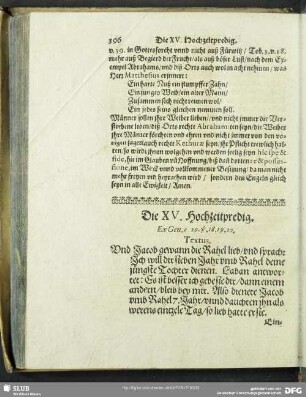 306 Die XV. Hochzeitpredig.
v. 19. in Gottesforcht vnnd nicht auß Fürwitz / Tob. 3. v. 18.
mehr auß Begierd der Frucht / als auß böser Lust / nach dem Ex-
empel Abrahams / vnd diß Orts auch wol in acht nehmen / was
Herr Matthesius erjnnert:
Ein harte Nuß ein stumpffer Zahn /
Ein junges Weib / ein alter Mann /
Zusammen sich nicht reimen wol /
Ein jedes seins gleichen nemmen soll.
Männer sollen jhre Weiber lieben / vnd nicht jmmer die Ver-
storbene loben / diß Orts rechte Abraham seyn / die Weiber
jhre Männer förchten vnd ehren / vnd nicht jmmer von den
vorigen sagen / auch rechte Kethuræ seyn / jhr Pflicht trewlich hal-
ten / so wird jhnen wolgehen vnd werden selig seyn hîc spe &
fide, hie im Glauben vnd Hoffnung / biß daß dort re & possessi-
one, im Werck vnd vollkommener Besitzung / da man nicht
mehr freyen vnd heyrathen wird / sondern den Engeln gleich
seyn in alle Ewigkeit / Amen.
Die XV. Hochzeitpredig.
Ex Gen. c. 29. v. 18. 19. 20.
Textus.
Vnd Jacob gewann die Rahel lieb / vnd sprach:
Ich will dir sieben Jahr vmb Rahel deine
jüngste Tochter dienen. Laban antwor-
tet: Es ist besser ich geb sie dir / dann einem
andern / bleib bey mir. Also dienete Jacob
vmb Rahel 7. Jahr / vnnd dauchten jhn als
werens eintzele Tag / so lieb hatte er sie.
Ein-
SLUB